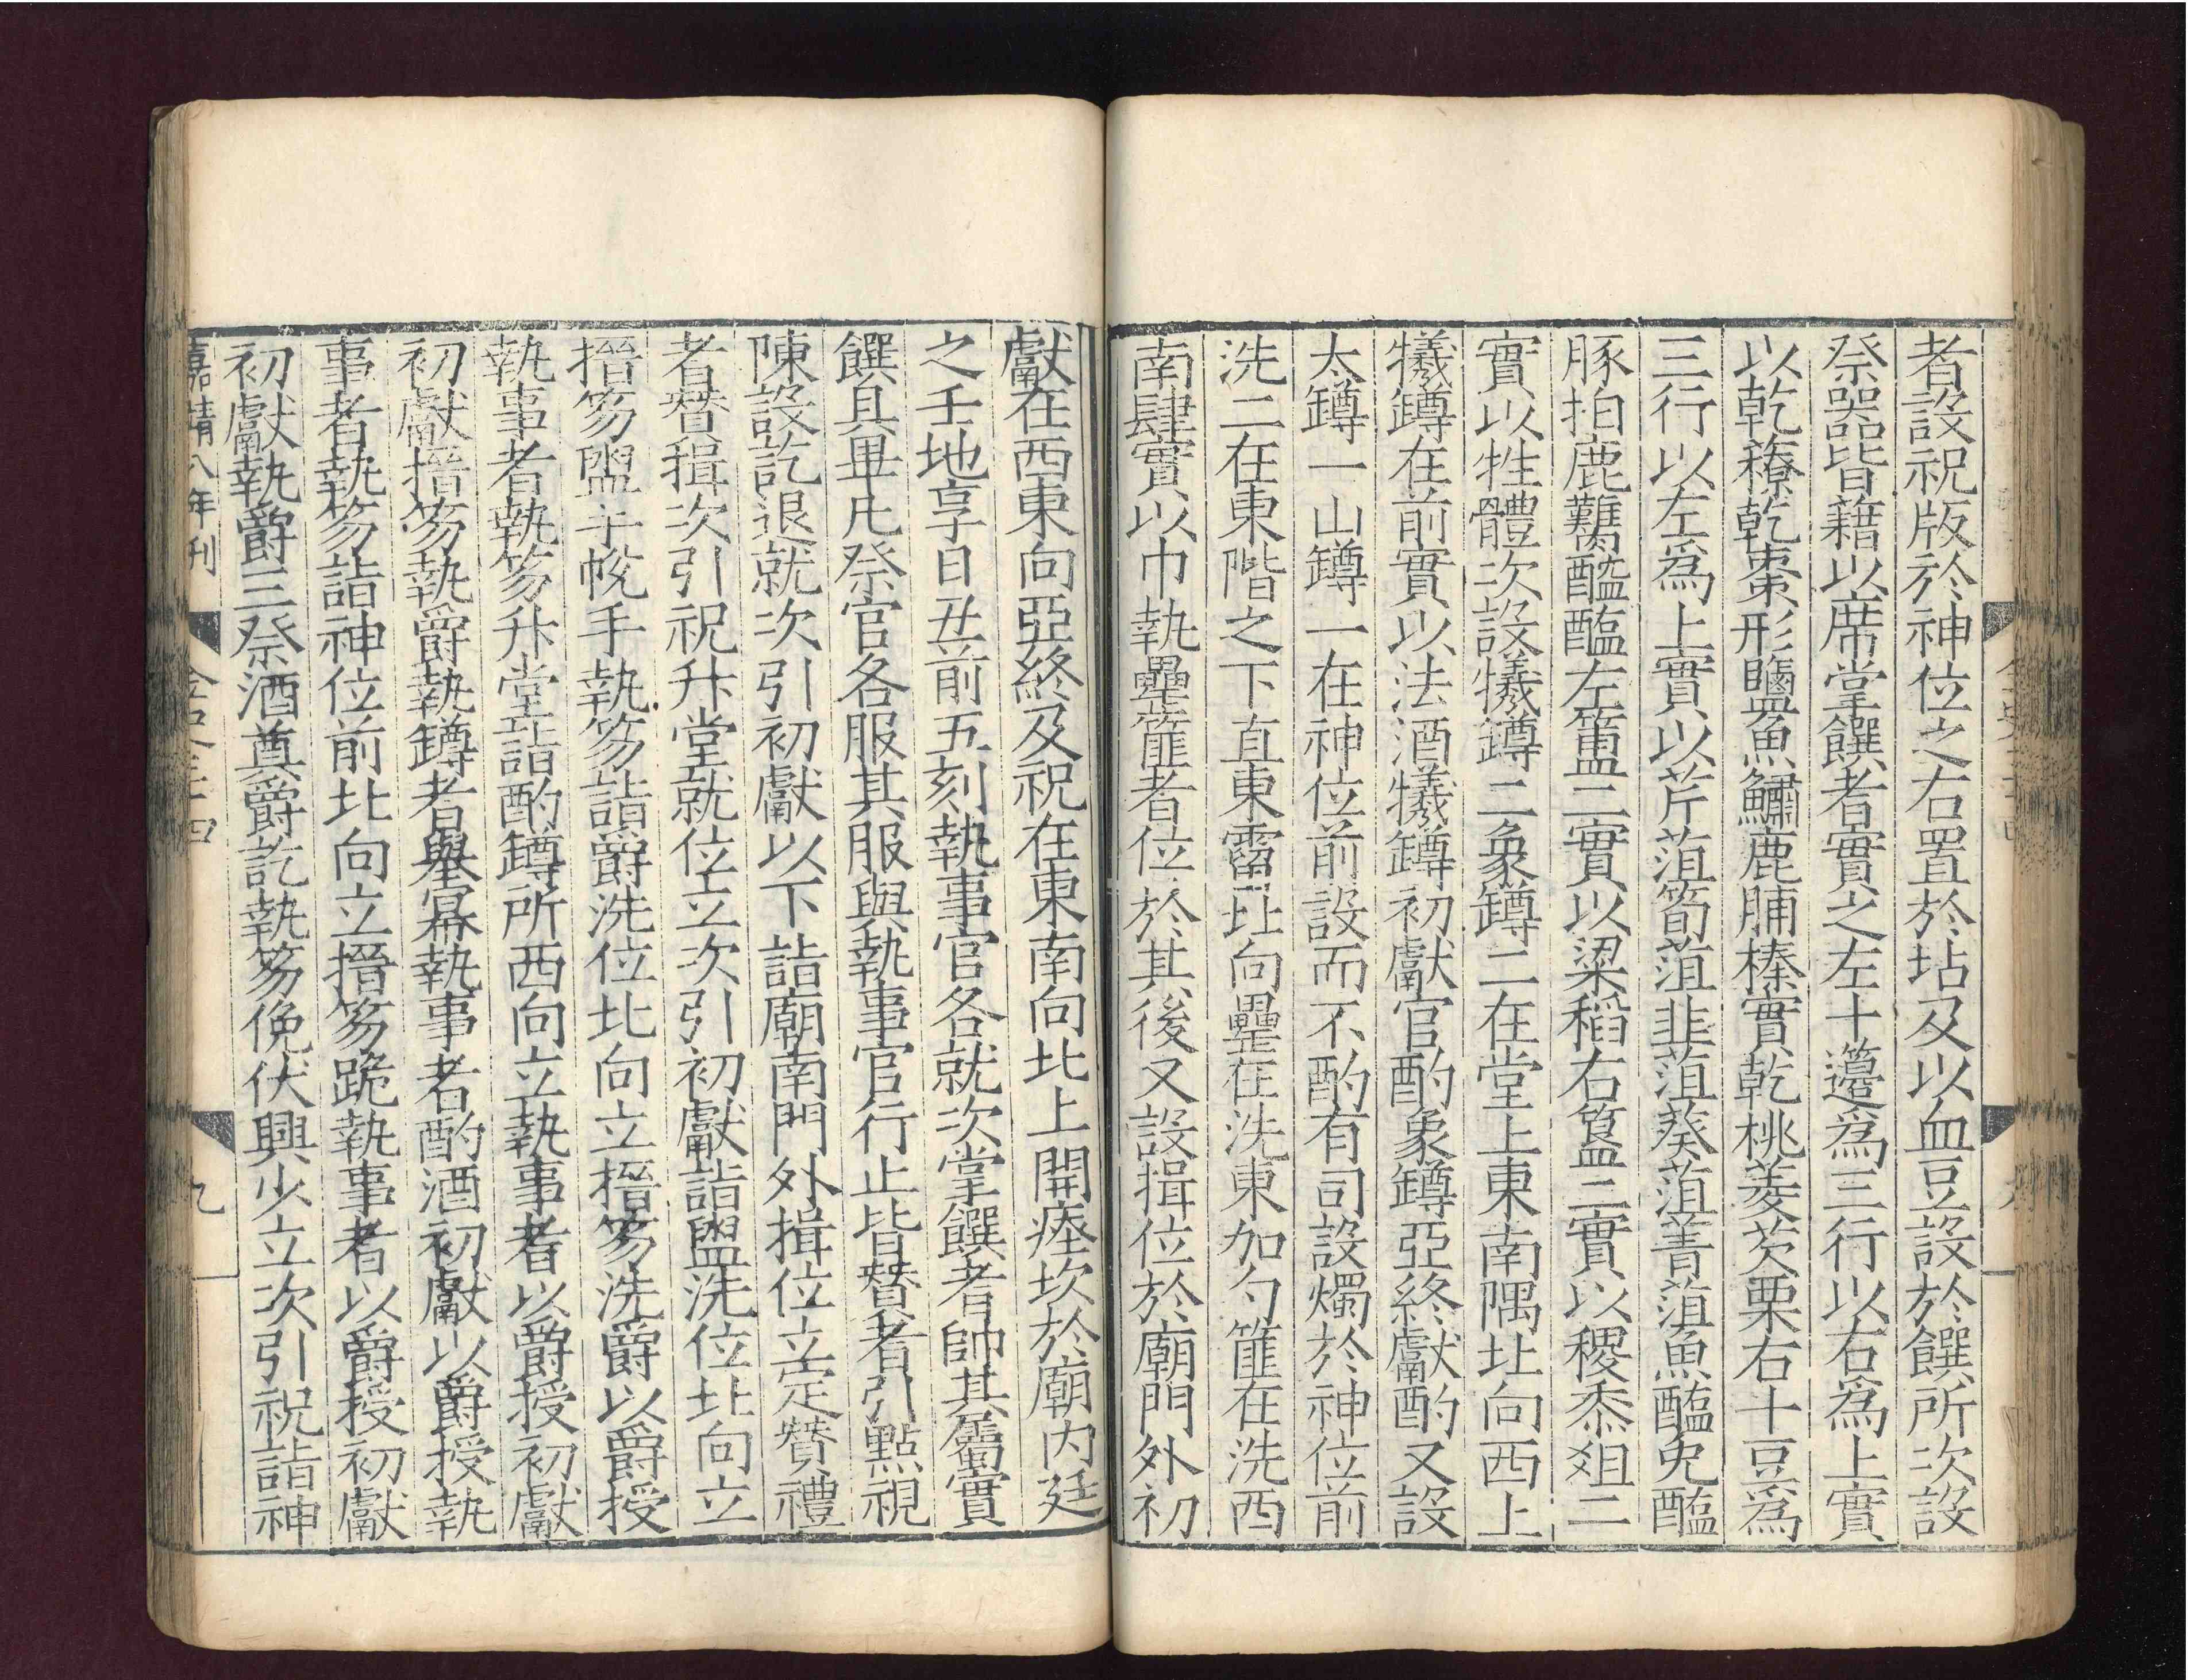 者設祝版於神位之右置於坫及以血豆設於饌所次設
祭器皆藉以席掌饌者實之左十籩爲三行以右爲上實
以乾䕩乾棗形鹽魚鱐鹿脯榛實乾桃菱芡栗右十豆爲
三行以左爲上實以芹菹筍菹韭菹葵菹菁菹魚醢兔醢
豚拍鹿臡醓醢左簠二實以粱稻右簋二實以稷黍俎二
實以牲體次設犧罇二象罇二在堂上東南隅北向西上
犧罇在前實以法酒犧罇初獻官酌象罇亞終獻酌又設
太罇一山罇一在神位前設而不酌有司設燭於神位前
洗二在東階之下直東霤北向罍在洗東加勺篚在洗西
南肆實以巾執罍篚者位於其後又設揖位於廟門外初
獻在西東向亞終及祝在東南向北上開瘞坎於廟内廷
之壬地享日丑前五刻執事官各就次掌饌者帥其屬實
饌具畢凡祭官各服其服與執事官行止皆贊者引點視
陳設訖退就次引初獻以下詣廟南門外揖位立定贊禮
者贊揖次引祝升堂就位立次引初獻詣盥洗位北向立
搢笏盥手帨手執笏詣爵洗位北向立搢笏洗爵以爵授
執事者執笏升堂詣酌罇所西向立執事者以爵授初獻
初獻搢笏執爵執罇者舉冪執事者酌酒初獻以爵授執
事者執笏詣神位前北向立搢笏跪執事者以爵授初獻
初獻執爵三祭酒奠爵訖執笏俛伏興少立次引祝詣神
嘉靖八年刊
金史三十四
九